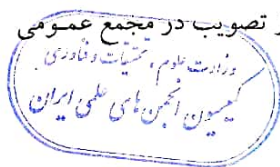 ر تصویب در مجمع عمومی
وزارت علوم، تحقیقات و فناوری
کمیسیون انجمن های علمی ایران